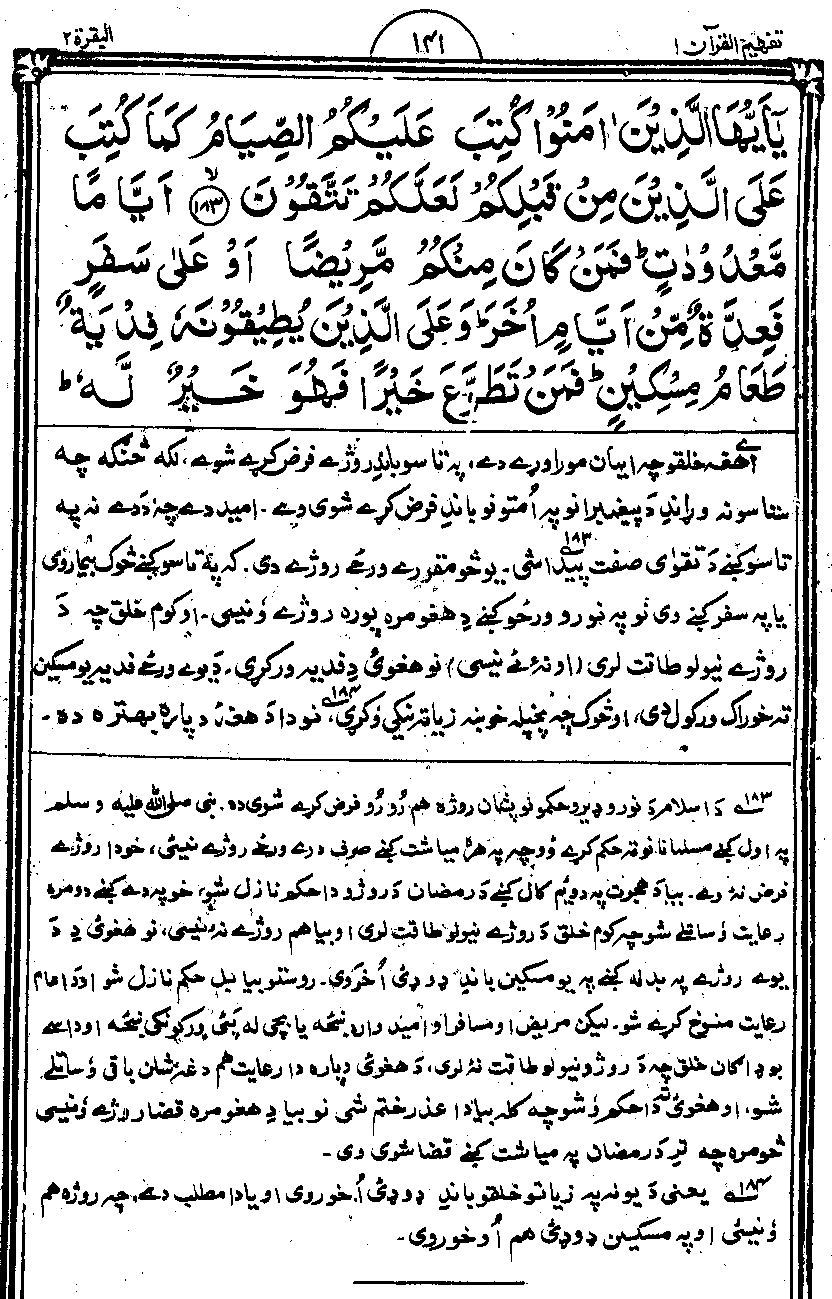 تفہیم القرآن ۱
۱۴۱
البقرة ۲
يٰٓاَيُّهَا الَّذِيْنَ اٰمَنُوْا كُتِبَ عَلَيْكُمُ الصِّيَامُ كَمَا كُتِبَ
عَلَى الَّذِيْنَ مِنْ قَبْلِكُمْ لَعَلَّكُمْ تَتَّقُوْنَ ۙ﴿۱۸۳﴾ اَيَّامًا
مَّعْدُوْدٰتٍ ؕ فَمَنْ كَانَ مِنْكُمْ مَّرِيْضًا اَوْ عَلٰى سَفَرٍ
فَعِدَّةٌ مِّنْ اَيَّامٍ اُخَرَ ؕ وَعَلَى الَّذِيْنَ يُطِيْقُوْنَهٗ فِدْيَةٌ
طَعَامُ مِسْكِيْنٍ ؕ فَمَنْ تَطَوَّعَ خَيْرًا فَهُوَ خَيْرٌ لَّهٗ ؕ
اے هغه خلقو چه ايمان مو راوړے دے، په تاسو باندِ روژے فرض کړے شوے، لکه څنګه چه
ستاسو نه وړاندِ دَ پيغمبرانو په اُمتونو باندِ فرض کړے شوی وے۔ اميد دے چه دَدے نه په
تاسو کښے دَ تقوٰی صفت پيدا شی۔ ۱۸۳ يو څو مقررے ورځے روژے دی. که په تاسو کښے څوک بيمار وی
يا په سفر کښے وی نو په نورو ورځو کښے دِ هغومره پوره روژے وَنيسی۔ او کوم خلق چه دَ
روژے نيولو طاقت لری (او نۀ ئے نيسی) نو هغوئ دِ فديه ورکړی۔ دَ يوے ورځے فديه يو مسکين
ته خوراک ورکول دی، او څوک چه پخپله خوښه زياته نيکی وَکړی، ۱۸۴ نو دا دَ هغۀ دپاره بهتره ده۔
۱۸۳ دَ اسلام دَ نورو ډيرو حکمونو پشان روژه هم رُو رُو فرض کړے شوی ده. نبی صلی الله عليه وسلم
په اول کښے مسلمانانو ته حکم کړے ووچه په هره مياشت کښے صرف درے ورځے روژے نيسئ، خو دا روژے
فرض نۀ وے۔ بيا دَ هجرت په دوئم کال کښے دَ رمضان دَ روژو دا حکم نازل شو، خو په دے کښے دومره
رعايت وَساتلے شو چه کوم خلق دَ روژے نيولو طاقت لری او بيا هم روژے نۀ نيسی، نو هغوئ دِ دَ
يوے روژے په بدله کښے په يو مسکين باندِ ډوډئ اُخروی۔ روستو بيا بل حکم نازل شو او دا عام
رعايت منسوخ کړے شو۔ ليکن مريض او مسافر او اميندواره ښځه يا بچی له پئی ورکونکی ښځه او داسے
بوډاګان خلق چه دَ روژو نيولو طاقت نۀ لری، دَ هغوئ دپاره دا رعايت هم دغه شان باقی وَساتلے
شو، او هغوئ ته دا حکم وَشو چه کله بيا دا عذر ختم شی نو بيا دِ هغومره قضا روژے وَنيسی
څومره چه ترِ دَ رمضان په مياشت کښے قضا شوی وی۔
۱۸۴ يعنی دَ يو نه په زياتو خلقو باندِ ډوډئ اُخوروی او يا دا مطلب دے، چه روژه هم
وَنيسئ او په مسکين ډوډئ هم اُوخوروی۔